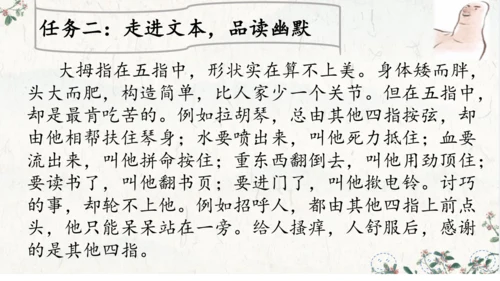 任务二：走进文本，品读幽默
大拇指在五指中，形状实在算不上美。身体矮而胖，
头大而肥，构造简单，比人家少一个关节。但在五指中，
却是最肯吃苦的。例如拉胡琴，总由其他四指按弦，却
由他相帮扶住琴身；水要喷出来，叫他死力抵住；血要
流出来，叫他拼命按住；重东西翻倒去，叫他用劲顶住；
要读书了，叫他翻书页；要进门了，叫他揿电铃。讨巧
的事，却轮不上他。例如招呼人，都由其他四指上前点
头，他只能呆呆站在一旁。给人搔痒，人舒服后，感谢
的是其他四指。